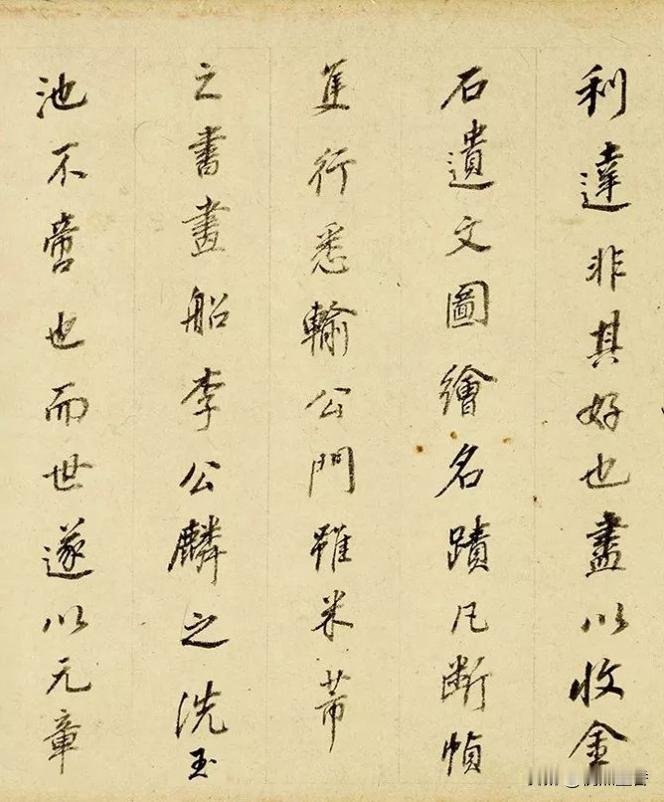 利達非其好也盡以收金
石遺文圖繪名蹟凡斷幀
隻行悉輸公門雖米芾
之書畫船李公麟之洗玉
池不啻也而世遂以元章